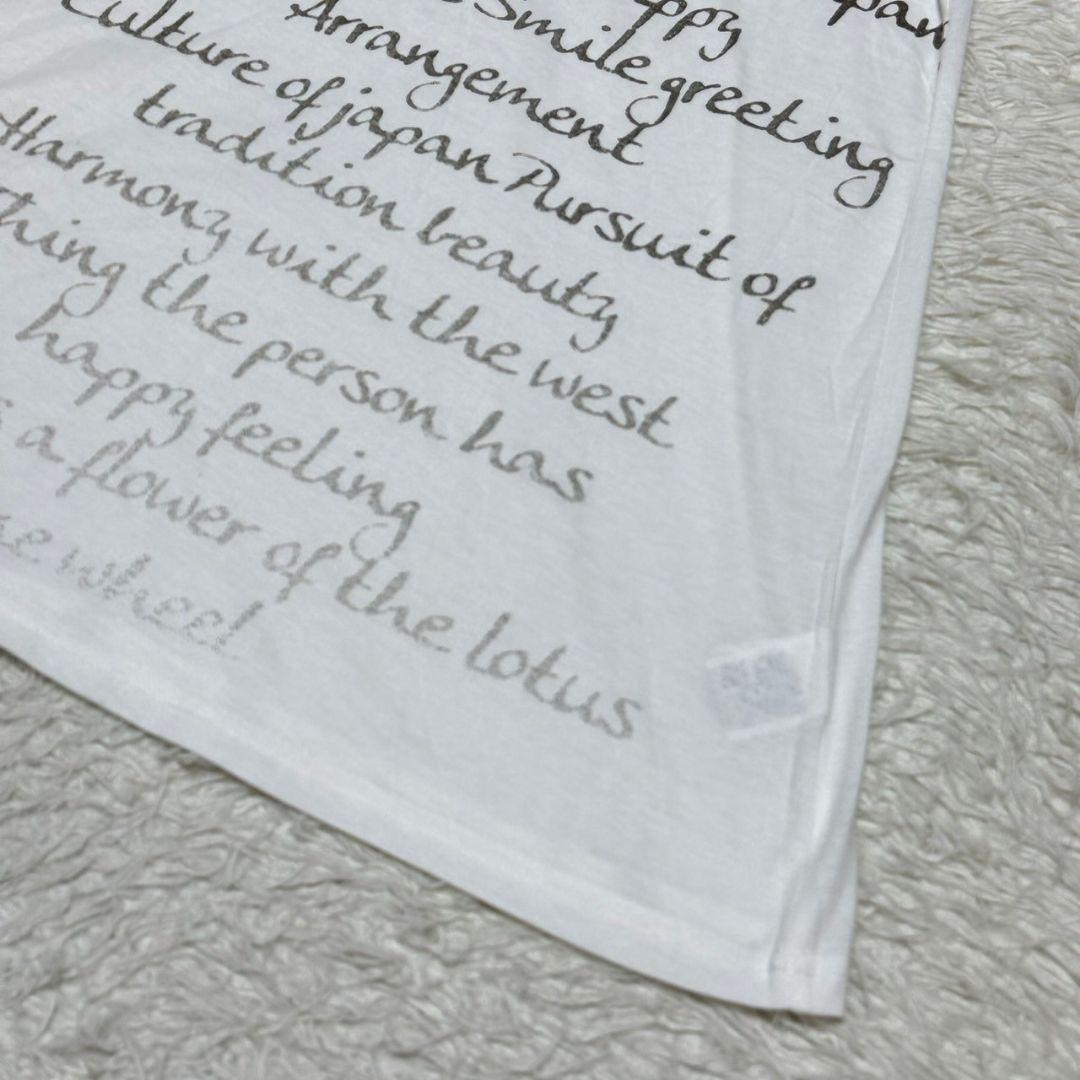 Smile greeting
Arrangement
Culture of japan Pursuit of
tradition beauty
Harmony with the west
thing the person has
happy feeling
a flower of the lotus
wheel